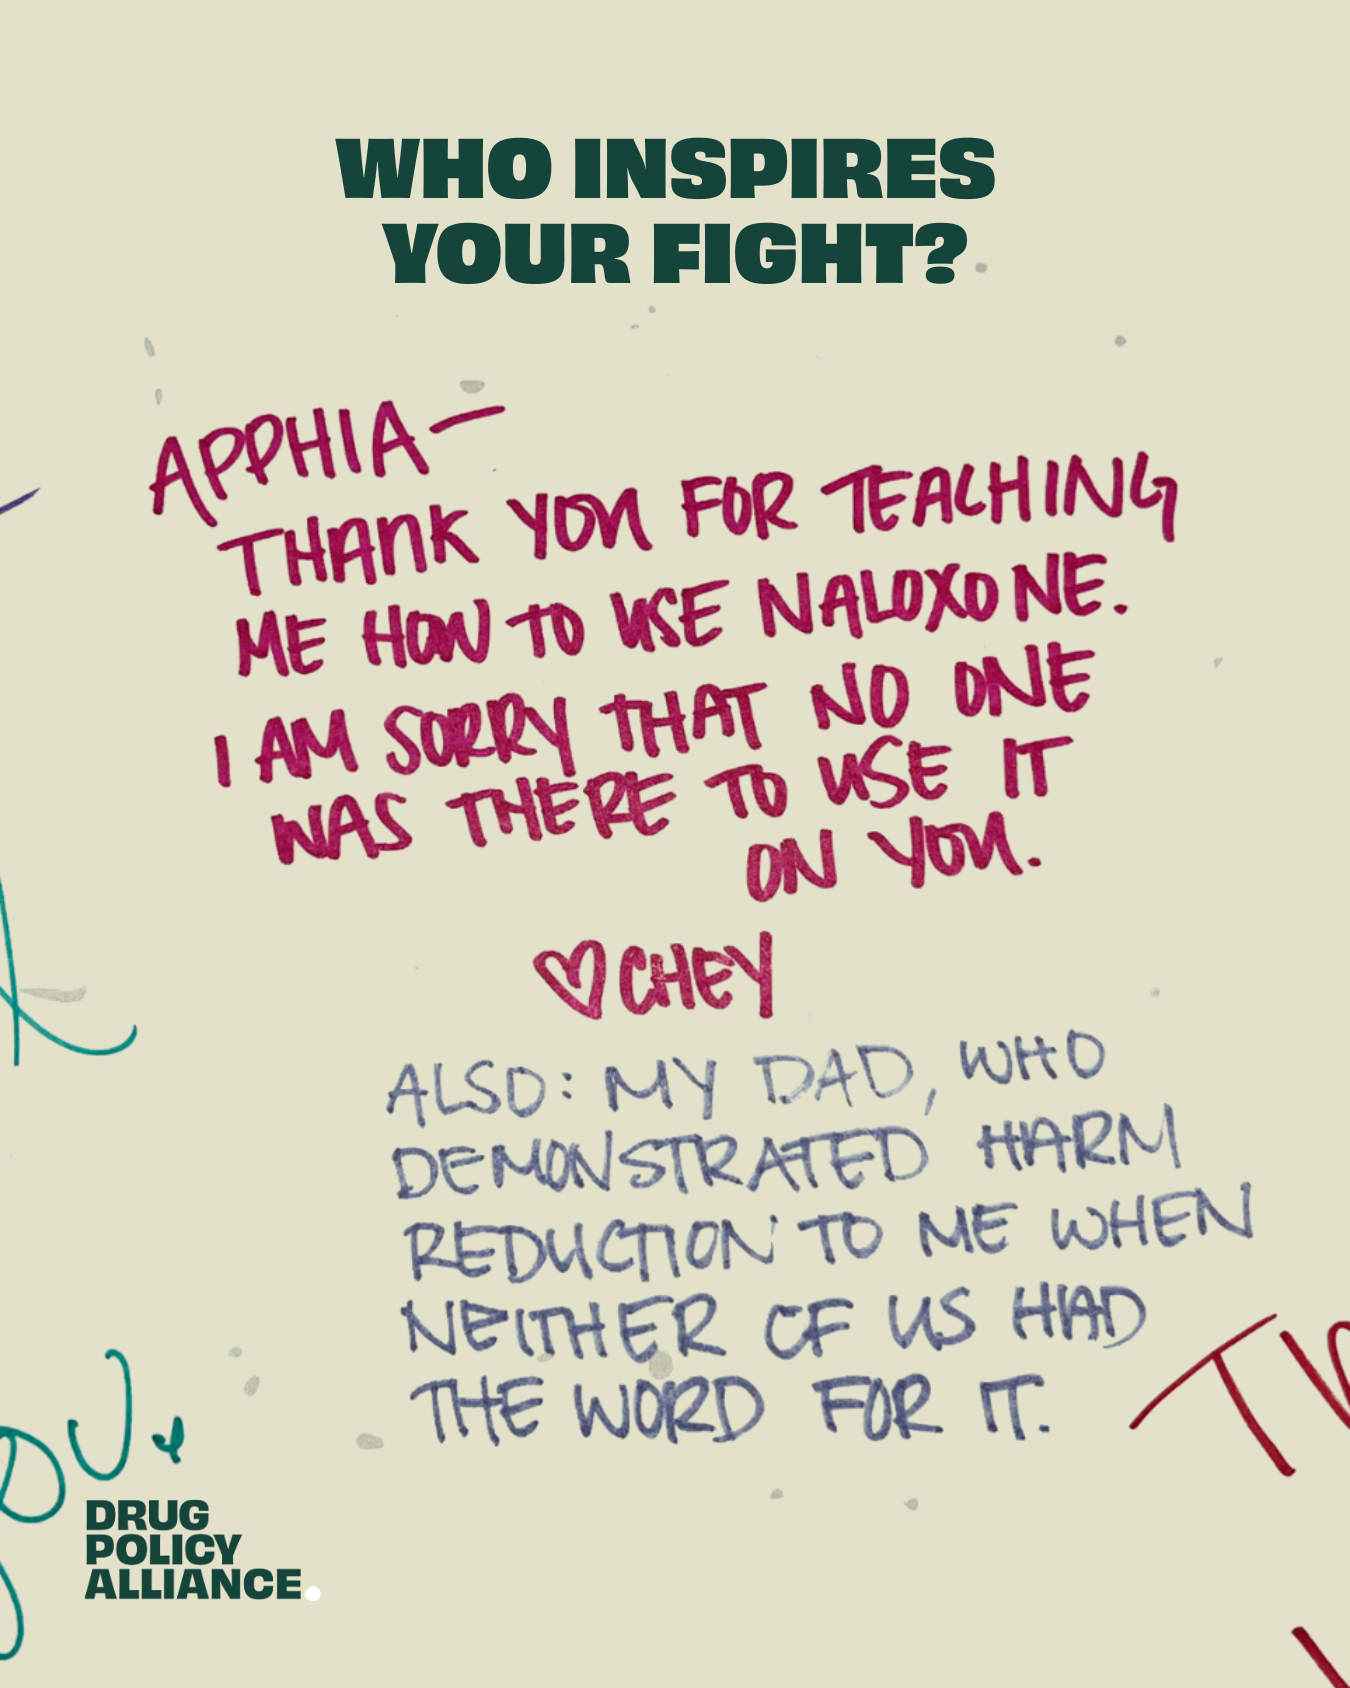 WHO INSPIRES
YOUR FIGHT?
APPHIA—
THANK YOU FOR TEACHING
ME HOW TO USE NALOXONE.
I AM SORRY THAT NO ONE
WAS THERE TO USE IT
ON YOU.
♡CHEY
ALSO: MY DAD, WHO
DEMONSTRATED HARM
REDUCTION TO ME WHEN
NEITHER OF US HAD
THE WORD FOR IT.
DRUG
POLICY
ALLIANCE.